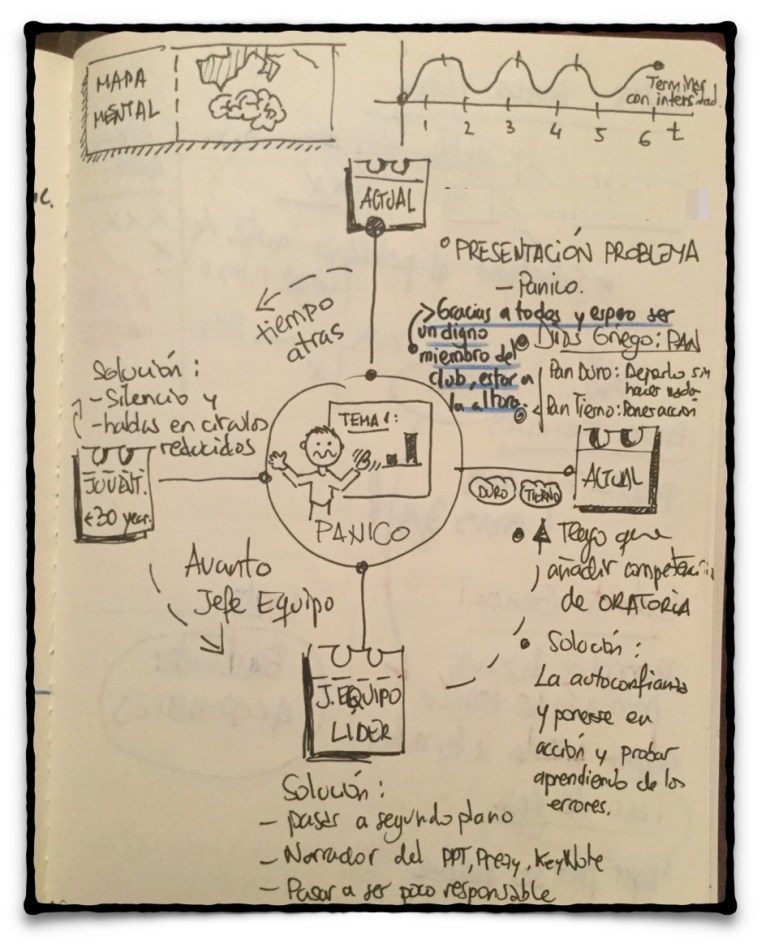 MAPA
MENTAL
Terminar
con intensidad.
1 2 3 4 5 6 t
ACTUAL
PRESENTACIÓN PROBLEMA
- Panico.
> Gracias a todos y espero ser
un digno
miembro del
club, estar a
la altura.
Dios Griego: PAN
Pan Duro: Dejarlo sin
hacer nada
Pan Tierno: Poner acción
tiempo
atras
Solución:
- Silencio y
- hablas en circulos
reducidos
JUVENT.
<30 year.
TEMA 1:
PANICO
DURO TIERNO
ACTUAL
Tengo que
añadir competencia
de ORATORIA
Solución:
La autoconfianza
y ponerse en
acción y probar
aprendiendo de los
errores.
Avanto
Jefe Equipo
J. EQUIPO
LIDER
Solución:
- pasar a segundo plano
- Narrador del PPT, Prezy, KeyNote
- Pasar a ser poco responsable